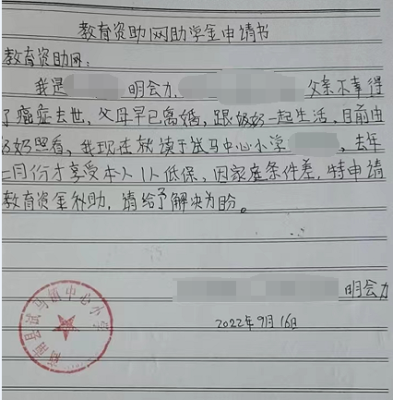 教育资助网助学金申请书
教育资助网:
我是 明会力, 父亲不幸得
了癌症去世,父母早已离婚,跟奶奶一起生活,目前由
奶奶照看,我现在就读于试马中心小学 ,去年
月份才享受本人1人低保,因家庭条件差,特申请
教育资金补助,请给予解决为盼。
明会力
商南县试马镇中心小学
2022年9月16日